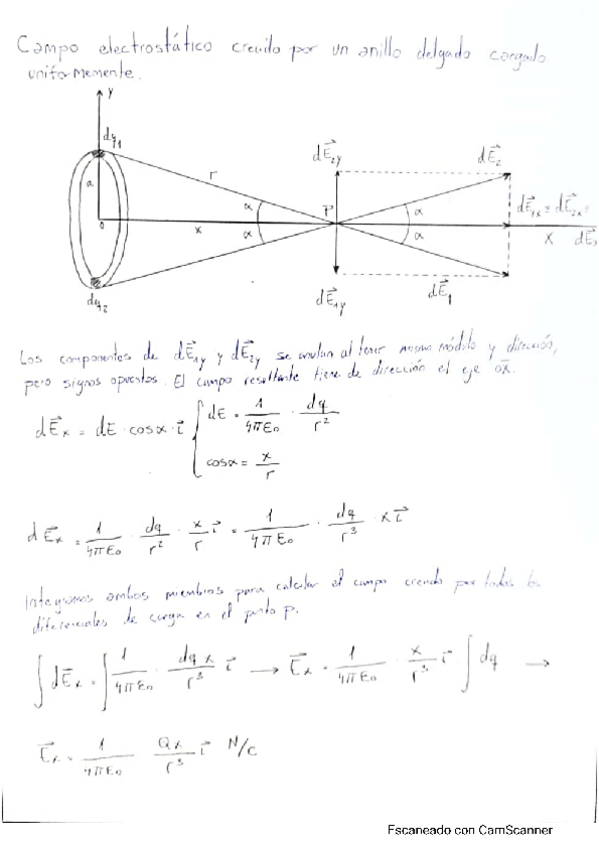 Campo electrostático creado por un anillo delgado cargado
uniformemente.
y
dq₁
a
r
dE⃗₂y
dE⃗₂
α
α
P
α
α
dE⃗₁x = dE⃗₂x =
o
x
x
dE⃗x
dq₂
dE⃗₁y
dE⃗₁
Los componentes de dE⃗₁y y dE⃗₂y se anulan al tener mismo módulo y dirección,
pero signos opuestos. El campo resultante tiene de dirección el eje ox⃗.
dE⃗x = dE · cosα · i⃗ { dE = 1/4πε₀ · dq/r²
cosα = x/r
dE⃗x = 1/4πε₀ · dq/r² · x/r i⃗ = 1/4πε₀ · dq/r³ · x i⃗
Integramos ambos miembros para calcular el campo creado por todos los
diferenciales de carga en el punto P.
∫dE⃗x = ∫ 1/4πε₀ · dq x/r³ i⃗ → E⃗x = 1/4πε₀ · x/r³ i⃗ ∫dq →
E⃗x = 1/4πε₀ Qx/r³ i⃗ N/C
Escaneado con CamScanner